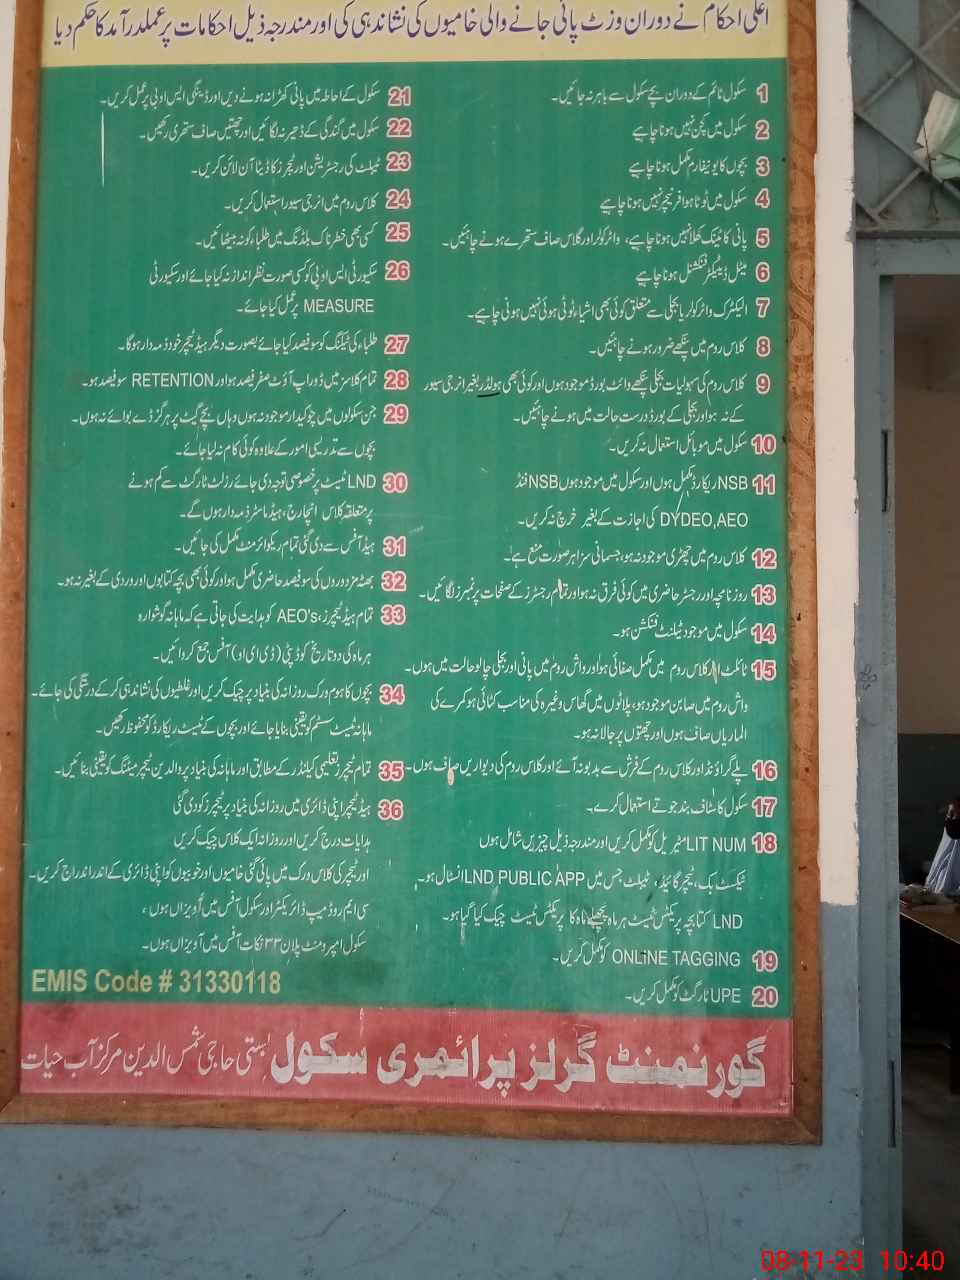 اعلیٰ احکام نے دوران وزٹ پائی جانے والی خامیوں کی نشاندہی کی اور مندرجہ ذیل احکامات پر عملدرآمد کا حکم دیا
1 سکول ٹائم کے دوران بچے سکول سے باہر نہ جائیں۔
2 سکول میں کچن نہیں ہونا چاہیے
3 بچوں کا یونیفارم مکمل ہونا چاہیے
4 سکول میں ٹوٹا ہوا فرنیچر نہیں ہونا چاہیے
5 پانی کا ٹینک کھلا نہیں ہونا چاہیے، واٹر کولر اور گلاس صاف ستھرے ہونے چاہئیں۔
6 میٹل ڈیٹیکٹر فنکشنل ہونا چاہیے
7 الیکٹرک واٹر کولر یا بجلی سے متعلق کوئی بھی اشیاء ٹوٹی ہوئی نہیں ہونی چاہیے۔
8 کلاس روم میں پنکھے ضرور ہونے چاہئیں۔
9 کلاس روم کی سہولیات بجلی پنکھے وائٹ بورڈ موجود ہوں اور کوئی بھی ہولڈر بغیر انرجی سیور
کے نہ ہو اور بجلی کے بورڈ درست حالت میں ہونے چاہئیں۔
10 سکول میں موبائل استعمال نہ کریں۔
11 NSB ریکارڈ مکمل ہوں اور سکول میں موجود ہوں NSB فنڈ
DYDEO,AEO کی اجازت کے بغیر خرچ نہ کریں۔
12 کلاس روم میں چھڑی موجود نہ ہو، جسمانی سزا ہر صورت منع ہے۔
13 روزنامچہ اور رجسٹر حاضری میں کوئی فرق نہ ہو اور تمام رجسٹرز کے صفحات پر نمبرز لگائیں۔
14 سکول میں موجود ٹیلنٹ فنکشن ہو۔
15 ٹائلٹ اور کلاس روم میں مکمل صفائی ہو اور واش روم میں پانی اور بجلی چالو حالت میں ہوں۔
واش روم میں صابن موجود ہو، پلاٹوں میں گھاس وغیرہ کی مناسب کٹائی ہو کمرے کی
الماریاں صاف ہوں اور چھتوں پر جالا نہ ہو۔
16 پلے گراؤنڈ اور کلاس روم کے فرش سے بدبو نہ آئے اور کلاس روم کی دیواریں صاف ہوں۔
17 سکول کا سٹاف بند جوتے استعمال کرے۔
18 LIT NUM میٹریل کو مکمل کریں اور مندرجہ ذیل چیزیں شامل ہوں
ٹیکسٹ بک، ٹیچر گائیڈ، ٹیبلٹ جس میں LND PUBLIC APP انسٹال ہو۔
LND کتابچہ پریکٹس ٹیسٹ ہر ماہ پچھلے ماہ کا پریکٹس ٹیسٹ چیک کیا گیا ہو۔
19 ONLINE TAGGING کو مکمل کریں۔
20 UPE ٹارگٹ کو مکمل کریں۔
21 سکول کے احاطہ میں پانی کھڑا نہ ہونے دیں اور ڈینگی ایس او پی پر عمل کریں۔
22 سکول میں گندگی کے ڈھیر نہ لگائیں اور چھتیں صاف ستھری رکھیں۔
23 ٹیبلٹ کی رجسٹریشن اور ٹیچرز کا ڈیٹا آن لائن کریں۔
24 کلاس روم میں انرجی سیور استعمال کریں۔
25 کسی بھی خطرناک بلڈنگ میں طلباء کو نہ بیٹھائیں۔
26 سکیورٹی ایس او پی کو کسی صورت نظر انداز نہ کیا جائے اور سکیورٹی
MEASURE پر عمل کیا جائے۔
27 طلباء کی ٹیگنگ کو سو فیصد کیا جائے بصورت دیگر ہیڈ ٹیچر خود ذمہ دار ہوگا۔
28 تمام کلاسز میں ڈوراپ آؤٹ صفر فیصد ہو اور RETENTION سو فیصد ہو۔
29 جن سکولوں میں چوکیدار موجود نہ ہوں وہاں بچے گیٹ پر ہرگز ڈے بوائے نہ ہوں۔
بچوں سے تدریسی امور کے علاوہ کوئی کام نہ لیا جائے۔
30 LND ٹیسٹ پر خصوصی توجہ دی جائے رزلٹ ٹارگٹ سے کم ہونے
پر متعلقہ کلاس انچارج، ہیڈ ماسٹر ذمہ دار ہوں گے۔
31 ہیڈ آفس سے دی گئی تمام ریکوائرمنٹ مکمل کی جائیں۔
32 بھٹہ مزدوروں کی سو فیصد حاضری مکمل ہو اور کوئی بھی بچہ کتابوں اور وردی کے بغیر نہ ہو۔
33 تمام ہیڈ ٹیچرز، AEO's کو ہدایت کی جاتی ہے کہ ماہانہ گوشوارہ
ہر ماہ کی دو تاریخ کو ڈپٹی (ڈی ای او) آفس جمع کروائیں۔
34 بچوں کا ہوم ورک روزانہ کی بنیاد پر چیک کریں اور غلطیوں کی نشاندہی کر کے درستگی کی جائے۔
ماہانہ ٹیسٹ سسٹم کو یقینی بنایا جائے اور بچوں کے ٹیسٹ ریکارڈ کو محفوظ رکھیں۔
35 تمام ٹیچر تعلیمی کیلنڈر کے مطابق اور ماہانہ کی بنیاد پر والدین ٹیچر میٹنگ کو یقینی بنائیں۔
36 ہیڈ ٹیچر اپنی ڈائری میں روزانہ کی بنیاد پر ٹیچرز کو دی گئی
ہدایات درج کریں اور روزانہ ایک کلاس چیک کریں
اور ٹیچر کی کلاس ورک میں پائی گئی خامیوں اور خوبیوں کو اپنی ڈائری کے اندر اندراج کریں۔
سی ایم روڈ میپ ڈائریکٹر اور سکول آفس میں آویزاں ہوں،
سکول امپرومنٹ پلان ۳۳ نکات آفس میں آویزاں ہوں۔
EMIS Code # 31330118
گورنمنٹ گرلز پرائمری سکول بستی حاجی شمس الدین مرکز آب حیات
08-11-23 10:40